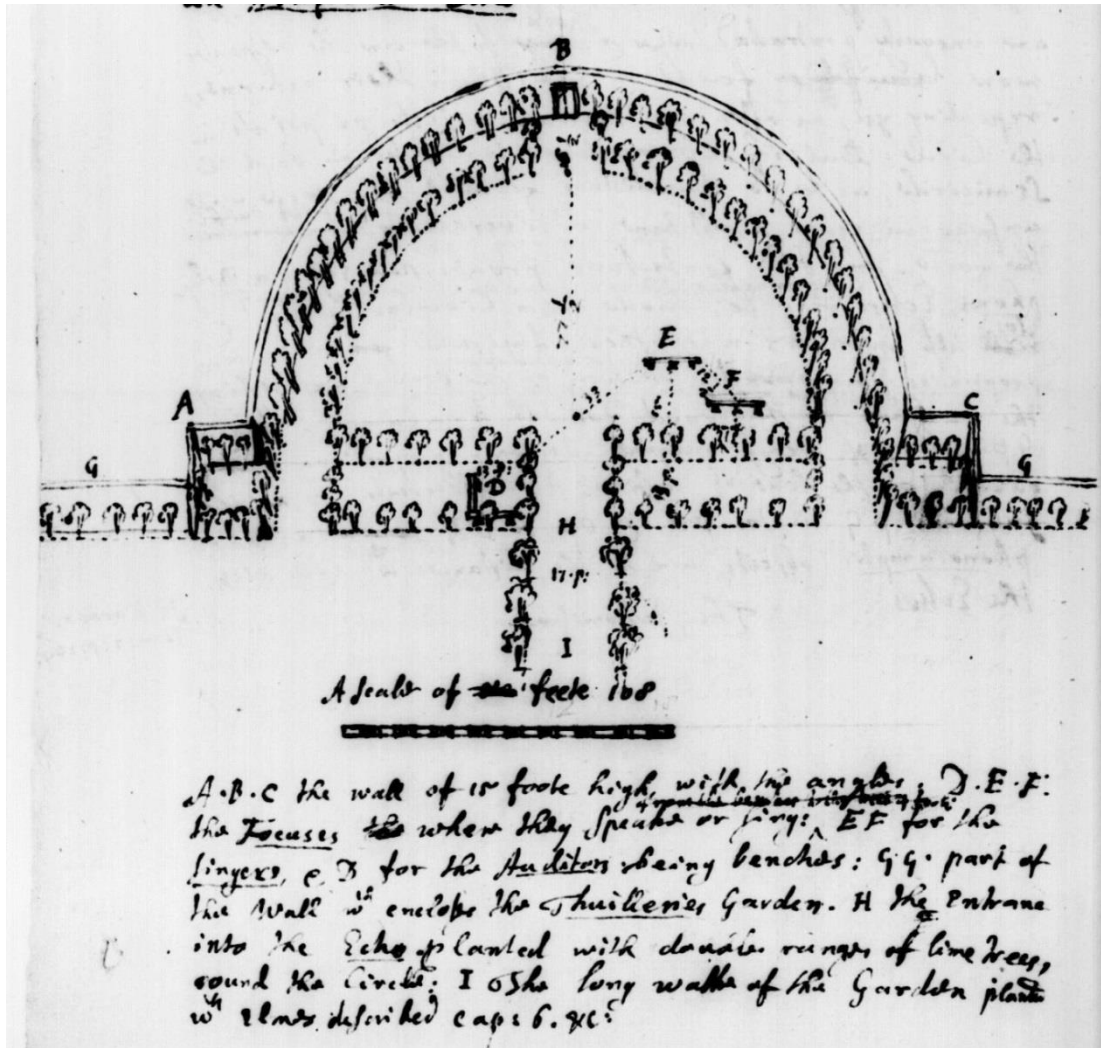 B
E
F
A
C
G
G
D
H
17. p:
I
A scale of feete 108
A . B . C the wall of 15 foote high, with the angles, D . E . F:
the Focuses where they speake or sing: EF for the
singers, & D for the Auditors being benches: G G. part of
the Wall wch enclops the Thuilleries Garden. H the Entrance
into the Echo planted with double ranges of lime trees,
round the Circle: I The long walke of the Garden planted
wth Elmes described cap: 6. &c: